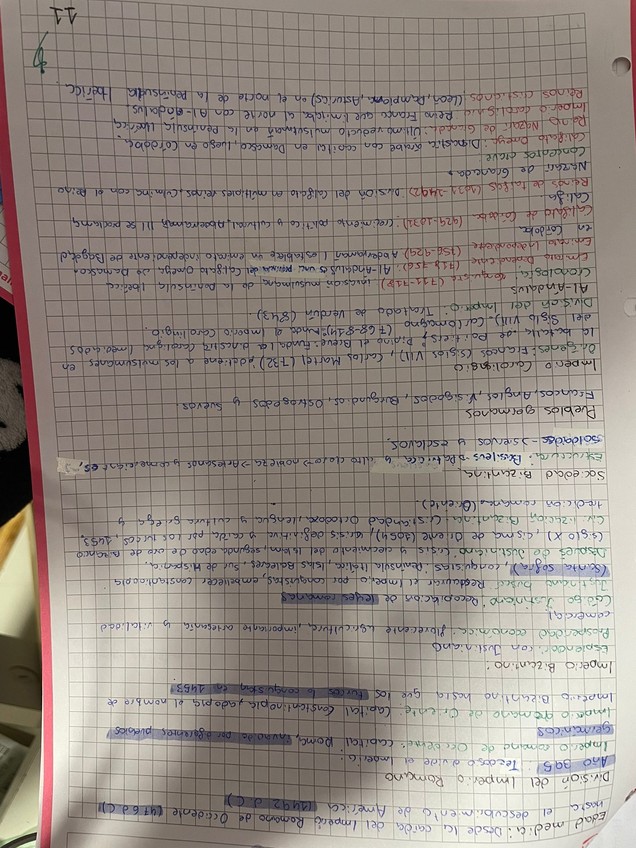 Edad media: Desde la caída del Imperio Romano de Occidente (476 d.C)
hasta el descubrimiento de América (1492 d.C)
División del Imperio Romano
Año 395: Teodosio divide el Imperio:
Imperio romano de Occidente: capital Roma, por diferentes pueblos
germánicos
Imperio romano de Oriente: Capital Constantinopla, adopta el nombre de
Imperio Bizantino hasta que los turcos la conquistan en 1453.
Imperio Bizantino:
Esplendor con Justiniano
Prosperidad económica: floreciente agricultura, importante artesanía y vitalidad
comercial
Código Justiniano: Recopilación de leyes romanas
Justiniano buscó Restaurar el Imperio por conquistas, embellecer Constantinopla
(Santa Sofía), conquistas: península Itálica, Islas Baleares, Sur de Hispania.
Después de Justiniano: crisis y crecimiento del Islam, segunda edad de oro
(siglo X), cisma de Oriente (1054), crisis definitiva y caída por los turcos, 1453.
Civilización Bizantina: Cristiandad Ortodoxa, lengua y cultura griega y
tradición romana (Oriente)
Sociedad Bizantina
Estructura: Basileus → Patriarca y alto clero → nobleza → Artesanos y comerciantes,
soldados → siervos y esclavos.
Pueblos germanos
Francos, Anglos, Visigodos, Burgundios, Ostrogodos y suevos.
Imperio Carolingio
Orígenes: Francos (siglos VIII), Carlos Martel (732) detiene a los musulmanes en
la batalla de Poitiers, Pipino el Breve: Funda la dinastía Carolingia (mediados
del Siglo VIII), Carlomagno (768-814): Funda el Imperio Carolingio.
División del Imperio: Tratado de Verdún (843)
Al-Andalus
Cronología: Conquista (711-718): invasión musulmana de la Península Ibérica
Emirato Dependiente (718-756): Al-Andalus es una del Califato Omeya de Damasco.
Emirato Independiente (756-929): Abderramán I establece un emirato independiente de Bagdad
en Córdoba.
Califato de Córdoba (929-1031): crecimiento político y cultural, Abderramán III se proclama
Califa.
Reinos de taifas (1031-1492) División del Califato en múltiples reinos, culmina con el Reino
Nazarí de Granada.
Conceptos clave
Califato Omeya: Dinastía árabe con capital en Damasco, luego en Córdoba.
Reino Nazarí de Granada: Último reducto musulmán en la Península Ibérica
Imperio carolingio: Reino Franco que limitaba al norte con Al-Andalus.
Reinos cristianos: (León, Pamplona, Asturias) en el norte de la Península Ibérica.
11